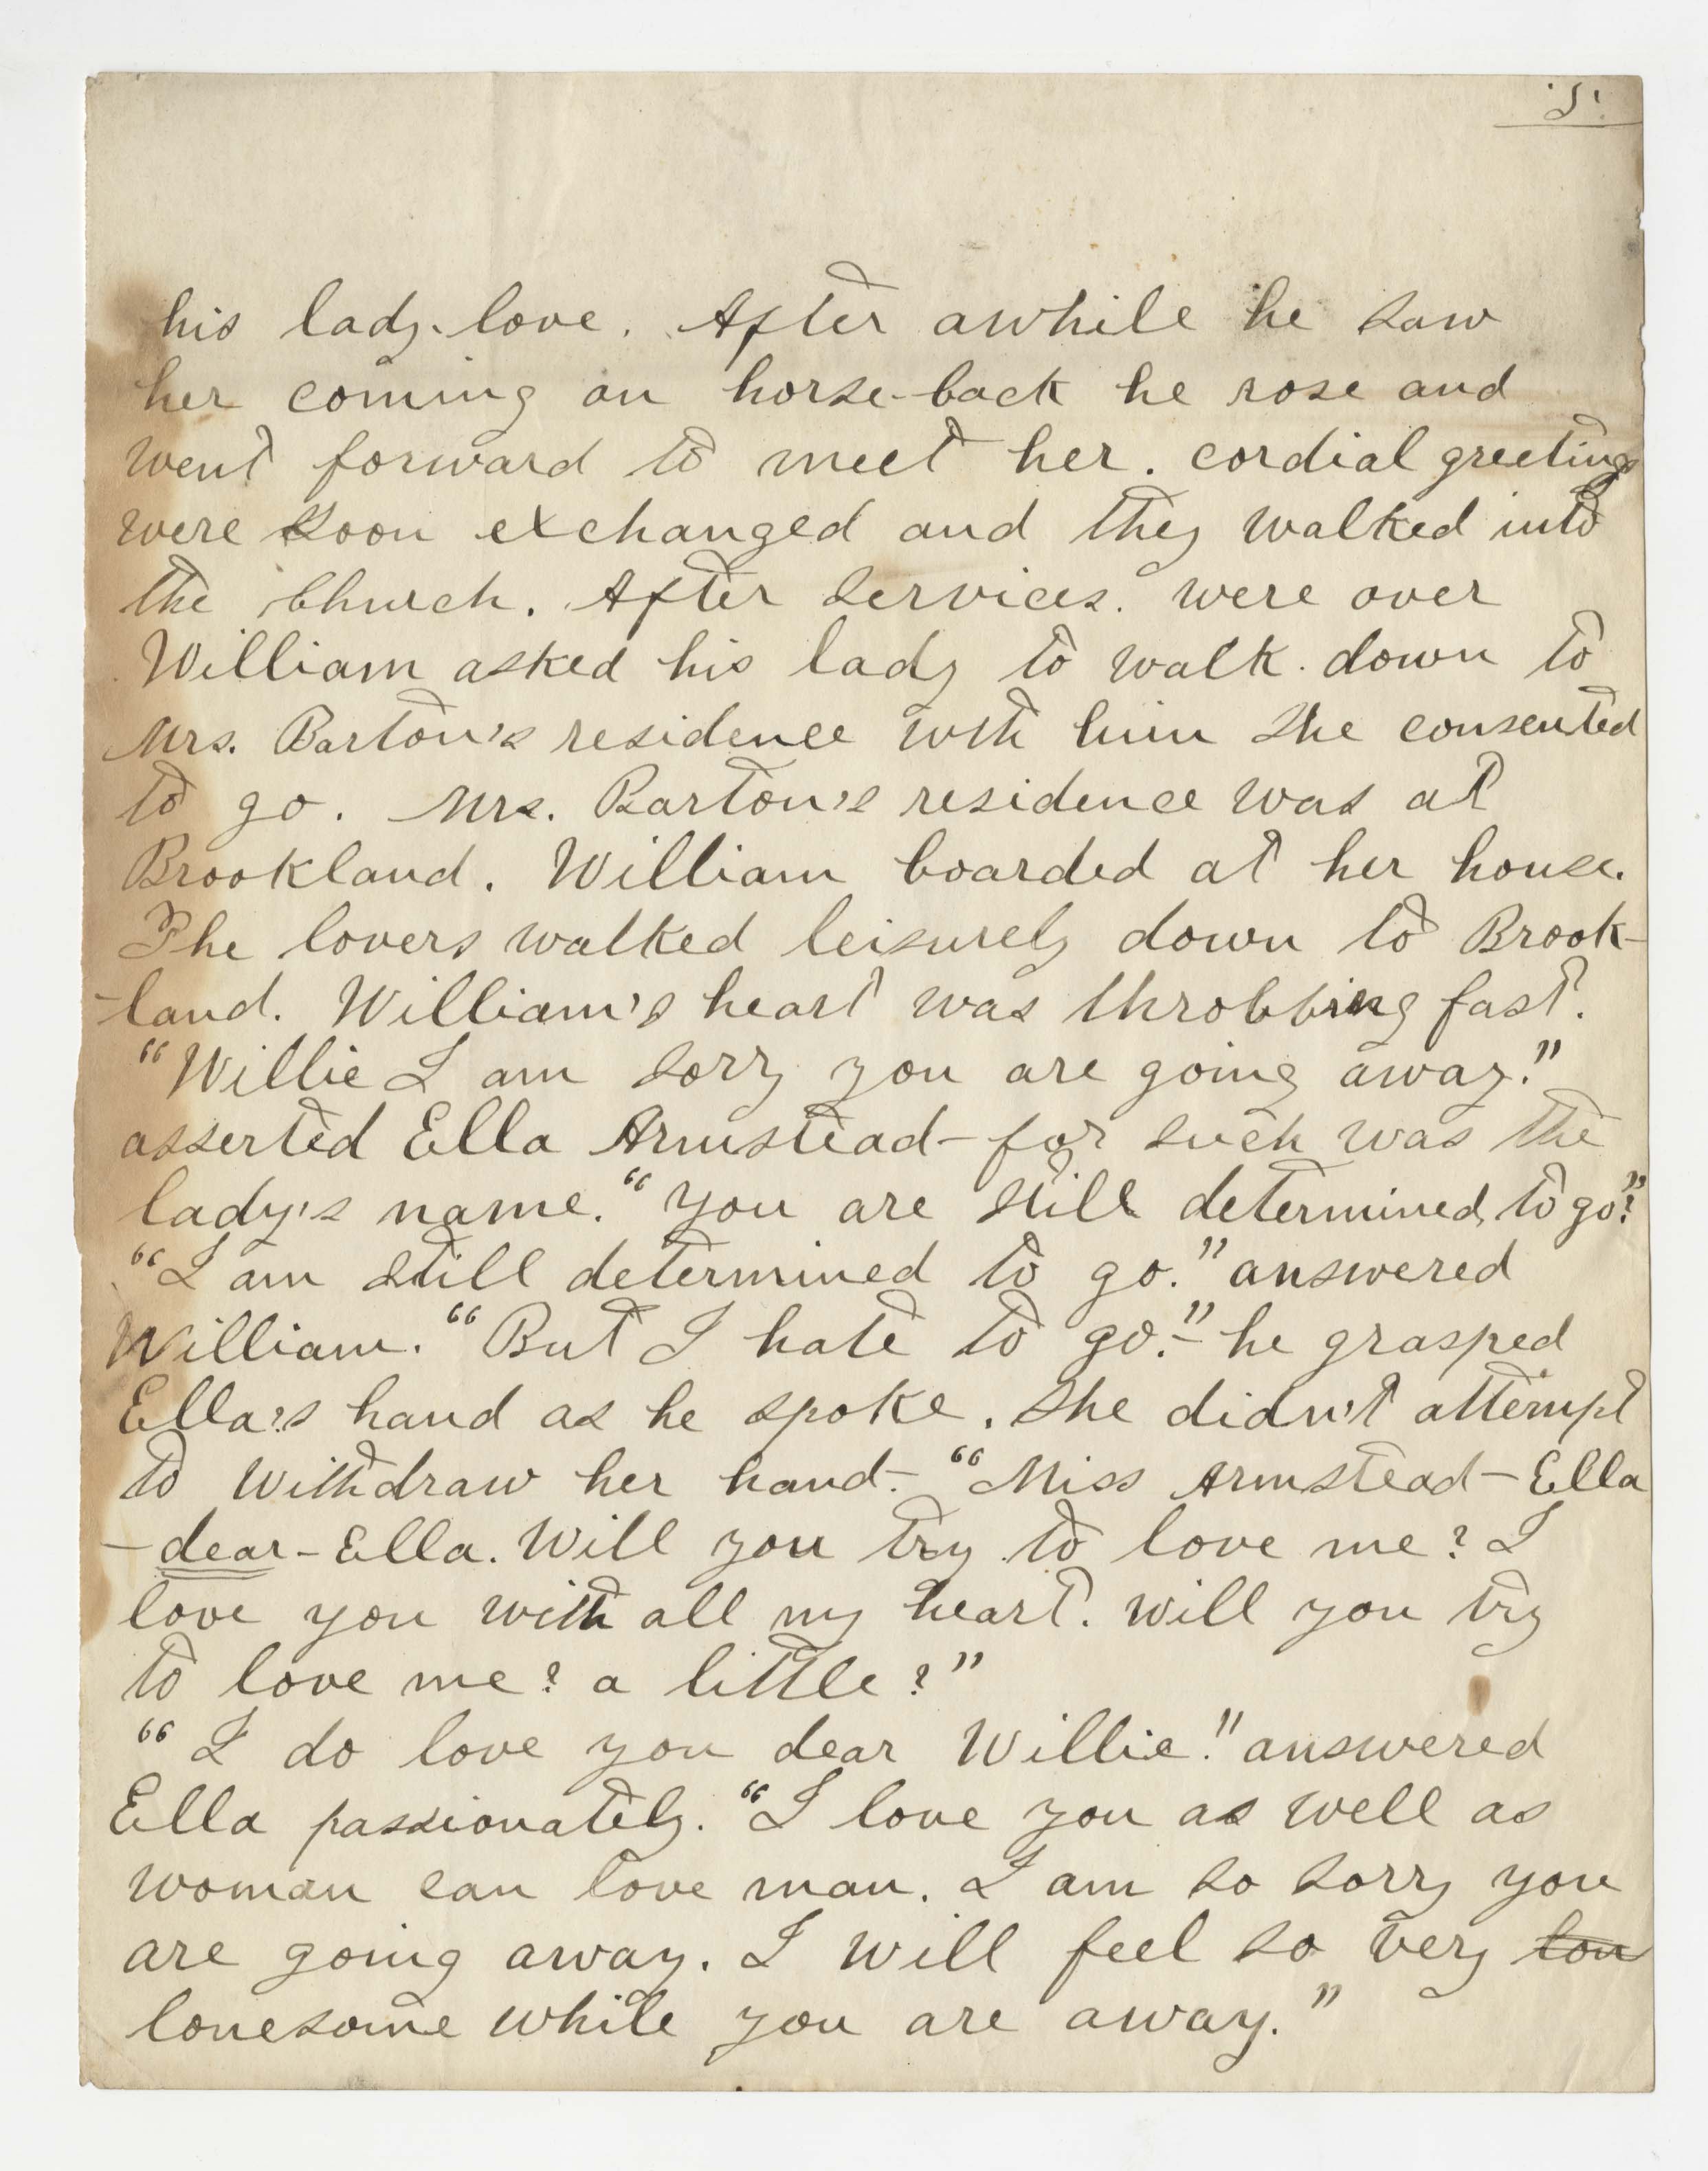 '5'
his lady-love. After awhile he saw
her coming on horse-back he rose and
went forward to meet her. cordial greetings
were soon exchanged and they walked into
the church. After services. were over
William asked his lady to walk down to
Mrs. Barton's residence with him She consented
to go. Mrs. Barton's residence was at
Brookland. William boarded at her house.
The lovers walked leisurely down to Brook-
-land. William's heart was throbbing fast.
"Willie I am sorry you are going away."
asserted Ella Armstead- for such was the
lady's name. "You are still determined to go?"
"I am still determined to go." answered
William. "But I hate to go."- he grasped
Ella's hand as he spoke. She didn't attempt
to withdraw her hand- "Miss Armstead-Ella
-dear-Ella. Will you try to love me? I
love you with all my heart. Will you try
to love me? a little?"
"I do love you dear Willie." answered
Ella passionately. "I love you as well as
woman can love man. I am so sorry you
are going away. I will feel so very lon
lonesome while you are away."